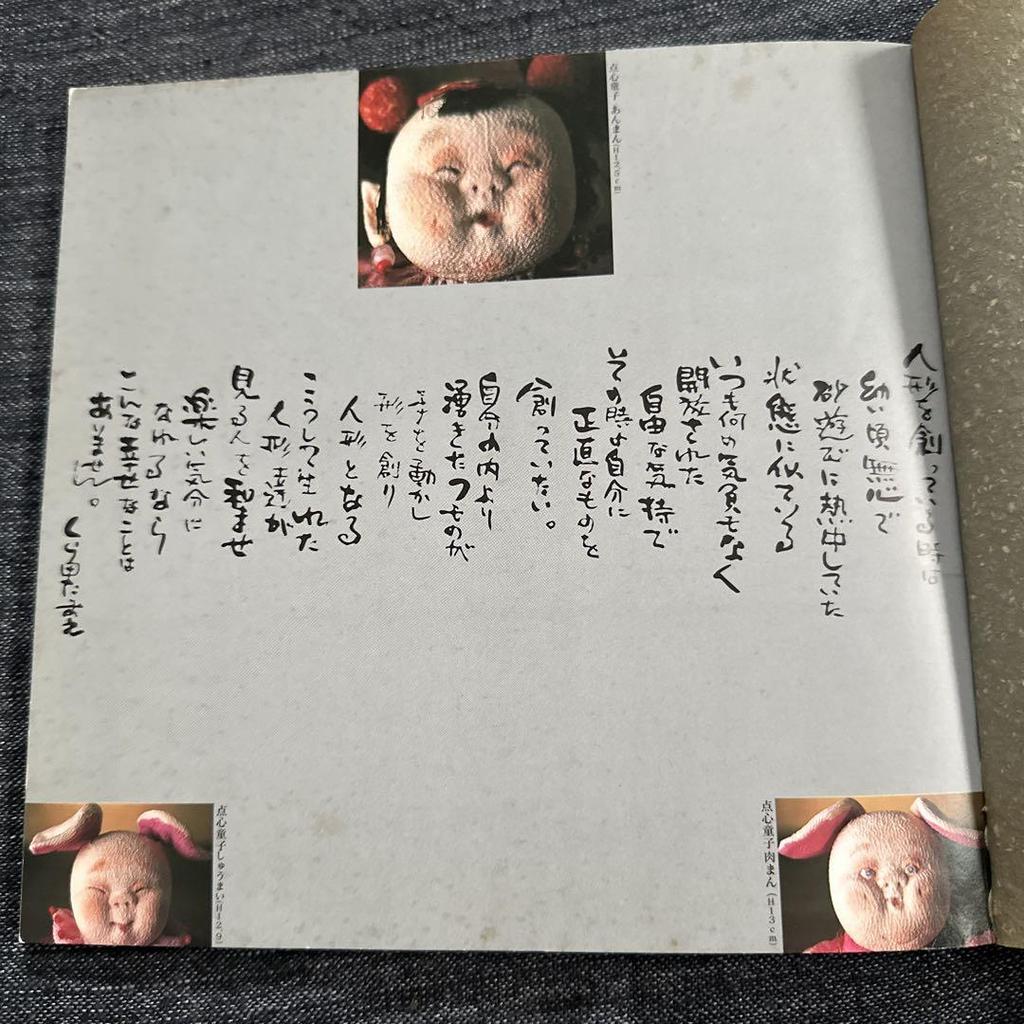 点心童子 あんまん(H12.5cm)
人形を創っている時は
幼い頃無心で
砂遊びに熱中していた
状態に似ている
いつも何の気負もなく
開放された
自由な気持で
その時は自分に
正直なものを
創っていない。
自分の内より
湧きたつものが
手を動かし
形を創り
人形となる
こうして生れた
人形達が
見る人を和ませ
楽しい気分に
なれるなら
こんな幸せなことは
ありません。
くら田たまえ
点心童子 肉まん(H13cm)
点心童子しゅうまい(H12.9)